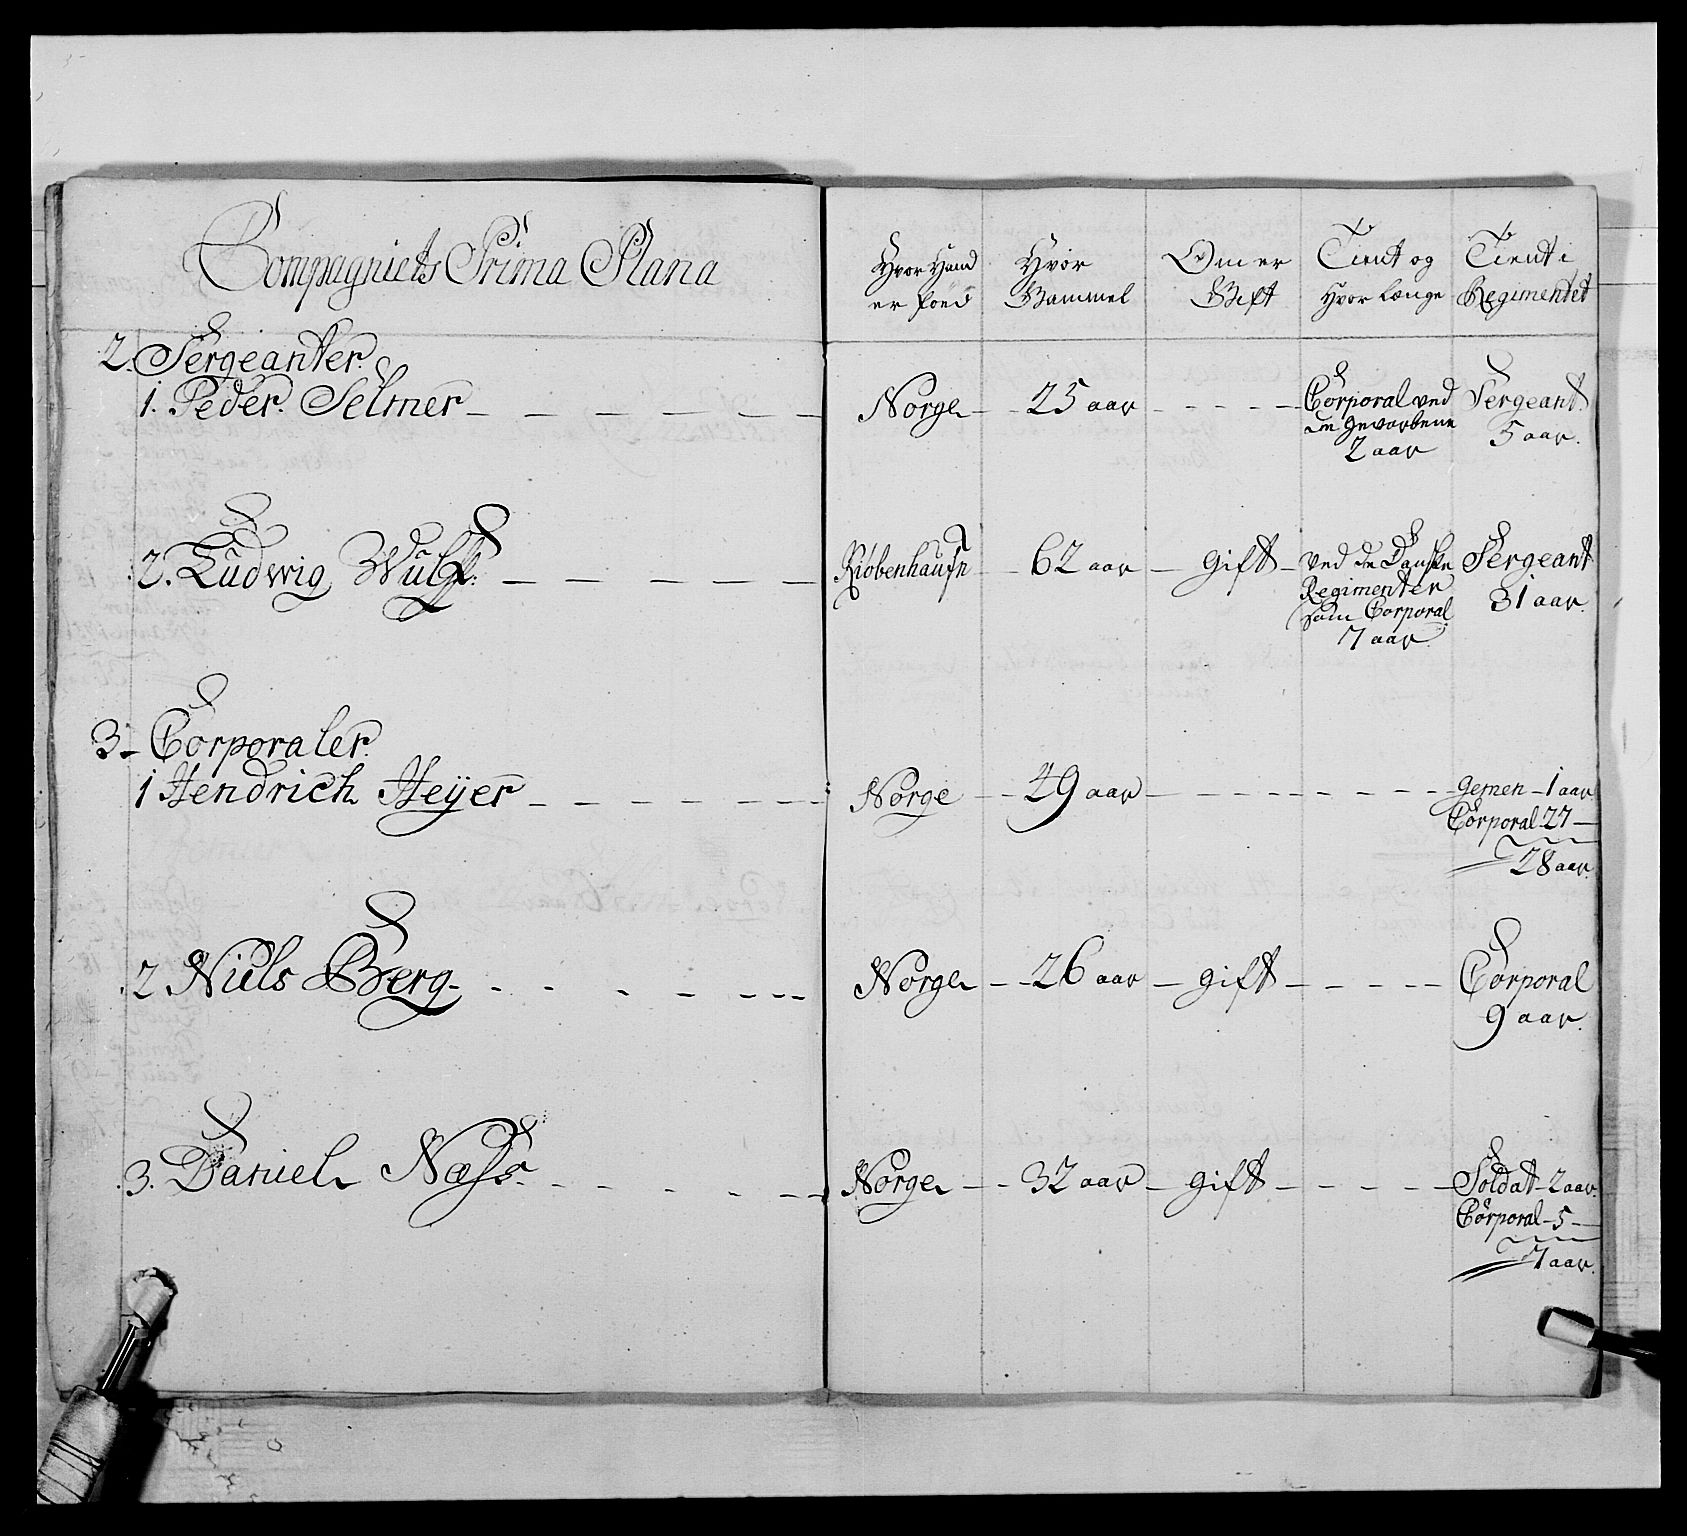 Compagniets Prima Plana
Hvor Hand er foed
Hvor Gammel
Om er Gift
Tient og Hvor længe
Tient i Regimentet
2. Sergeanter.
1. Peder Selmer
Norge
25 aar
Corporal ved
de gevorbene
2 aar
Sergeant
5 aar.
2. Ludwig Wulff.
Kiøbenhaufn
62 aar
gift
ved de Danske
Regimenter
som Corporal
7 aar.
Sergeant
31 aar.
3 Corporaler
1 Hendrich Heyer
Norge
49 aar
gemen 1 aar
Corporal 27
28 aar.
2 Niels Berg
Norge
26 aar
gift
Corporal
9 aar.
3. Daniel Næss
Norge
32 aar
gift
Soldat 2 aar
Corporal 5
7 aar.